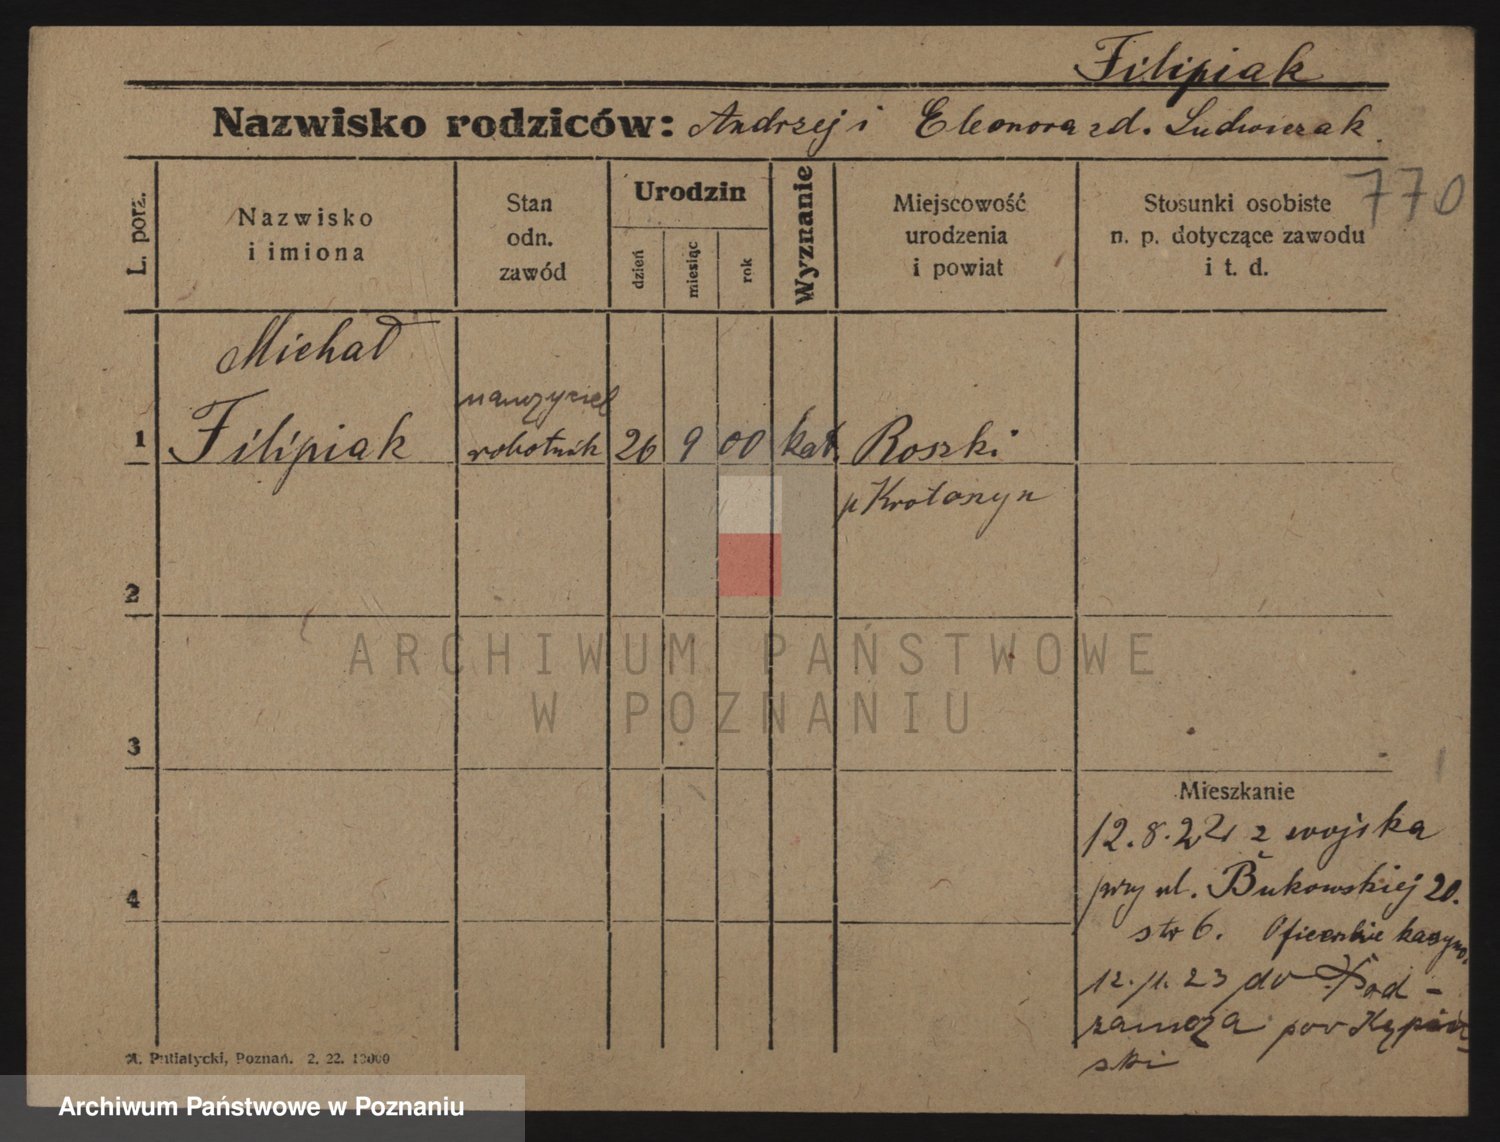 Filipiak
Nazwisko rodziców: Andrzej i Eleonora zd. Ludwiczak
770
L. porz.
Nazwisko
i imiona
Stan
odn.
zawód
Urodzin
dzień
miesiąc
rok
Wyznanie
Miejscowość
urodzenia
i powiat
Stosunki osobiste
n. p. dotyczące zawodu
i t. d.
Michał
nauczyciel
1 Filipiak robotnik 26 9 00 kat. Roszki
p Krotoszyn
2
ARCHIWUM PAŃSTWOWE
W POZNANIU
3
Mieszkanie
12.8.22 z wojska
przy ul. Bukowskiej 20.
4
str 6. Oficerskie kasyno.
12.11.23 do Pod-
zamcza pow Kępiń-
ski
A. Putiatycki, Poznań. 2. 22. 10000
Archiwum Państwowe w Poznaniu